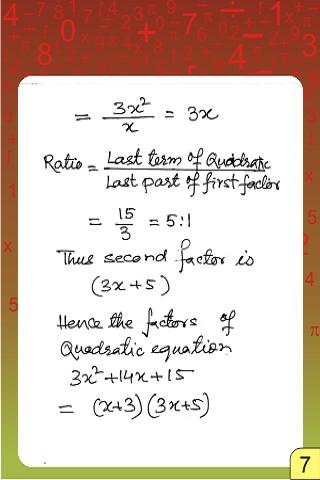 = 3x²/x = 3x
Ratio = Last term of Quadratic / Last part of first factor
= 15/3 = 5:1
Thus second factor is
(3x+5)
Hence the factors of
Quadratic equation
3x²+14x+15
= (x+3)(3x+5)
7